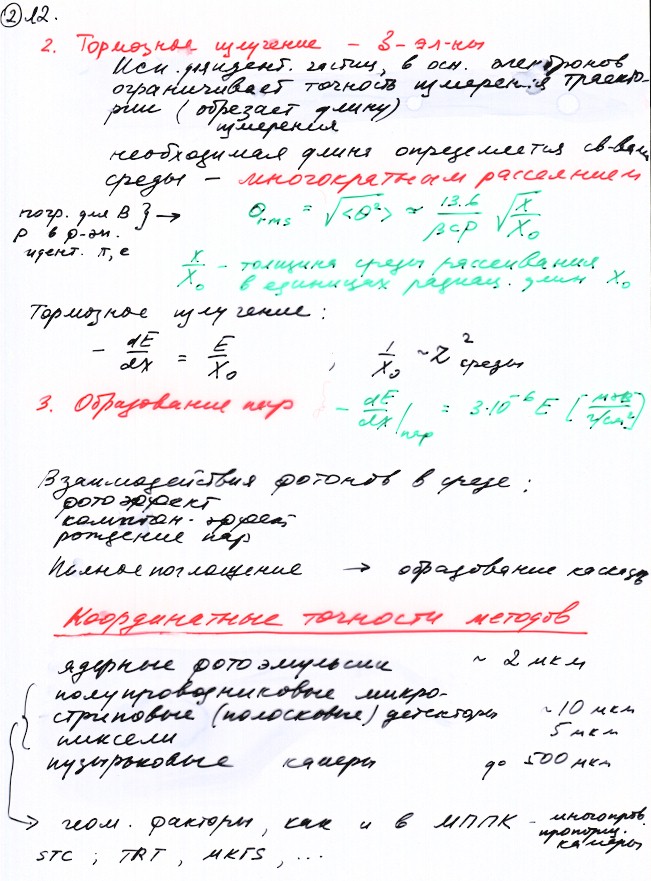 ② 12.
2. Тормозное излучение – З-эл-ны
Исп. для идент. частиц, в осн. электронов
ограничивает точность измерения траекто-
рии (обрезает длину)
измерения
необходимая длина определяется св-вами
среды – многократным рассеянием
погр. для B } →
p в p-эн.
идент. π, e
θrms = √<θ²> ≈ 13.6/βcp √X/X₀
X/X₀ – толщина среды рассеивания
в единицах радиац. длин X₀
Тормозное излучение:
– dE/dx = E/X₀ ; 1/X₀ ~ Z² среды
3. Образование пар – dE/dx|пар = 3·10⁻⁶ E [МэВ/г/см²]
Взаимодействия фотонов в среде:
фотоэффект
комптон-эффект
рождение пар
Полное поглощение → образование каскада
Координатные точности методов
ядерные фотоэмульсии ~ 2 мкм
полупроводниковые микро-
стриповые (полосковые) детекторы ~10 мкм
пиксели 5 мкм
пузырьковые камеры до 500 мкм
→ геом. факторы, как и в МППК – многопров.
пропорц.
камеры
STC ; TRT , MKTS , ...